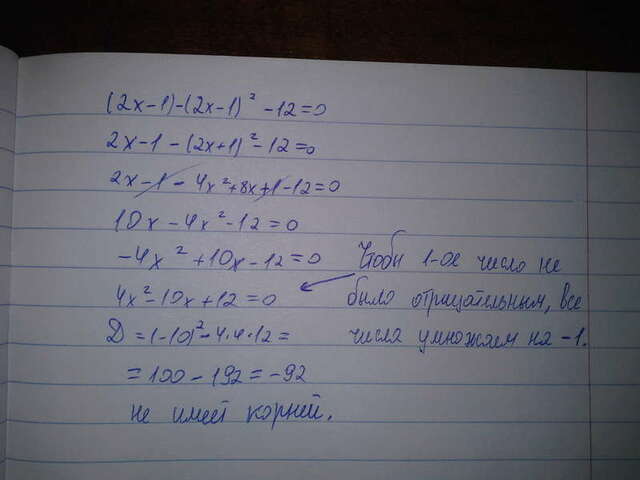 (2x-1)-(2x-1)² -12=0
2x-1-(2x+1)²-12=0
2x-1-4x²+8x+1-12=0
10x-4x²-12=0
-4x²+10x-12=0 Чтобы 1-ое число не
4x²-10x+12=0 было отрицательным, все
D=(-10)²-4·4·12= числа умножаем на -1.
=100-192=-92
не имеет корней.